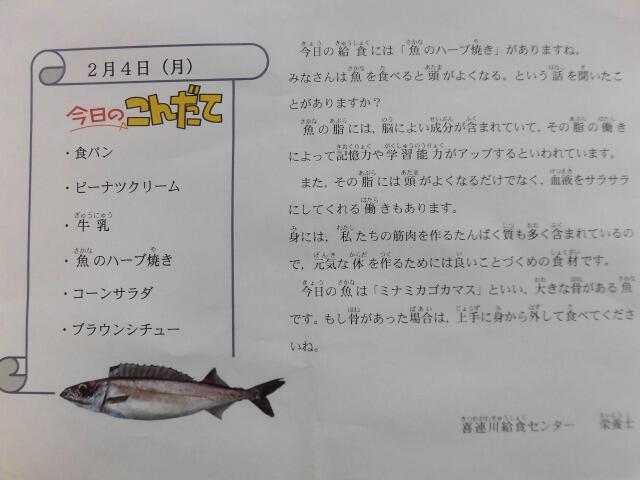 2月4日（月）
今日のこんだて
・食パン
・ピーナツクリーム
・牛乳
・魚のハーブ焼き
・コーンサラダ
・ブラウンシチュー
今日の給食には「魚のハーブ焼き」がありますね。
みなさんは魚を食べると頭がよくなる。という話を聞いたこ
とがありますか？
魚の脂には，脳によい成分が含まれていて，その脂の働き
によって記憶力や学習能力がアップするといわれています。
また，その脂には頭がよくなるだけでなく，血液をサラサラ
にしてくれる働きもあります。
身には，私たちの筋肉を作るたんぱく質も多く含まれているの
で，元気な体を作るためには良いことづくめの食材です。
今日の魚は「ミナミカゴカマス」といい，大きな骨がある魚
です。もし骨があった場合は，上手に身から外して食べてくださ
いね。
喜連川給食センター　栄養士